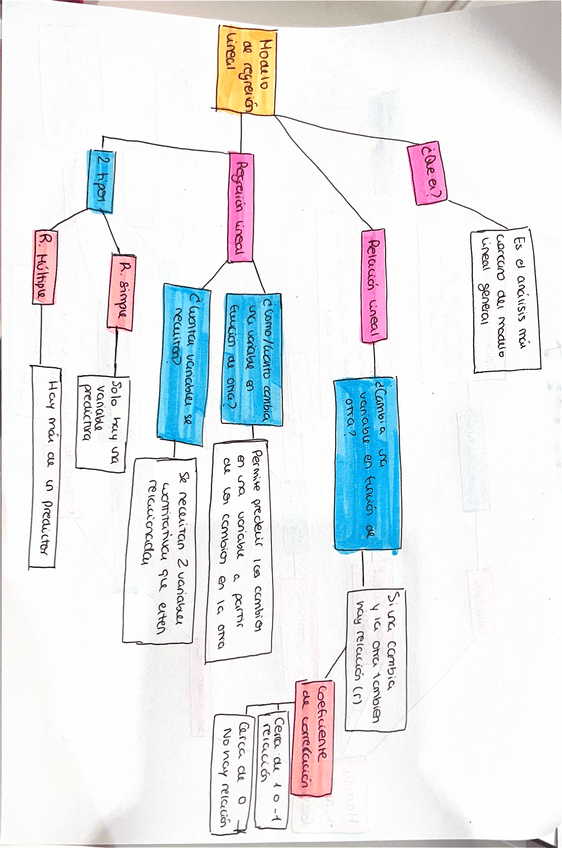 Modelo
de regresión
lineal
¿Que es?
Es el análisis más
cercano del modelo
lineal general
Relación lineal
¿Cambia una
variable en función de
otra?
Si una cambia
y la otra tambien
hay relación (r)
Coeficiente
de correlación
Cerca de 1 o -1
relación
Cerca de 0 →
No hay relación
Regresión lineal
¿Como/cuanto cambia
una variable en
función de otra?
Permite predecir los cambios
en una variable a partir
de los cambios en la otra
¿Cuantas variables se
necesitan?
Se necesitan 2 variables
cuantitativas que esten
relacionadas
2 tipos
R. simple
Solo hay una
variable
predictora
R. Múltiple
Hay más de un predictor